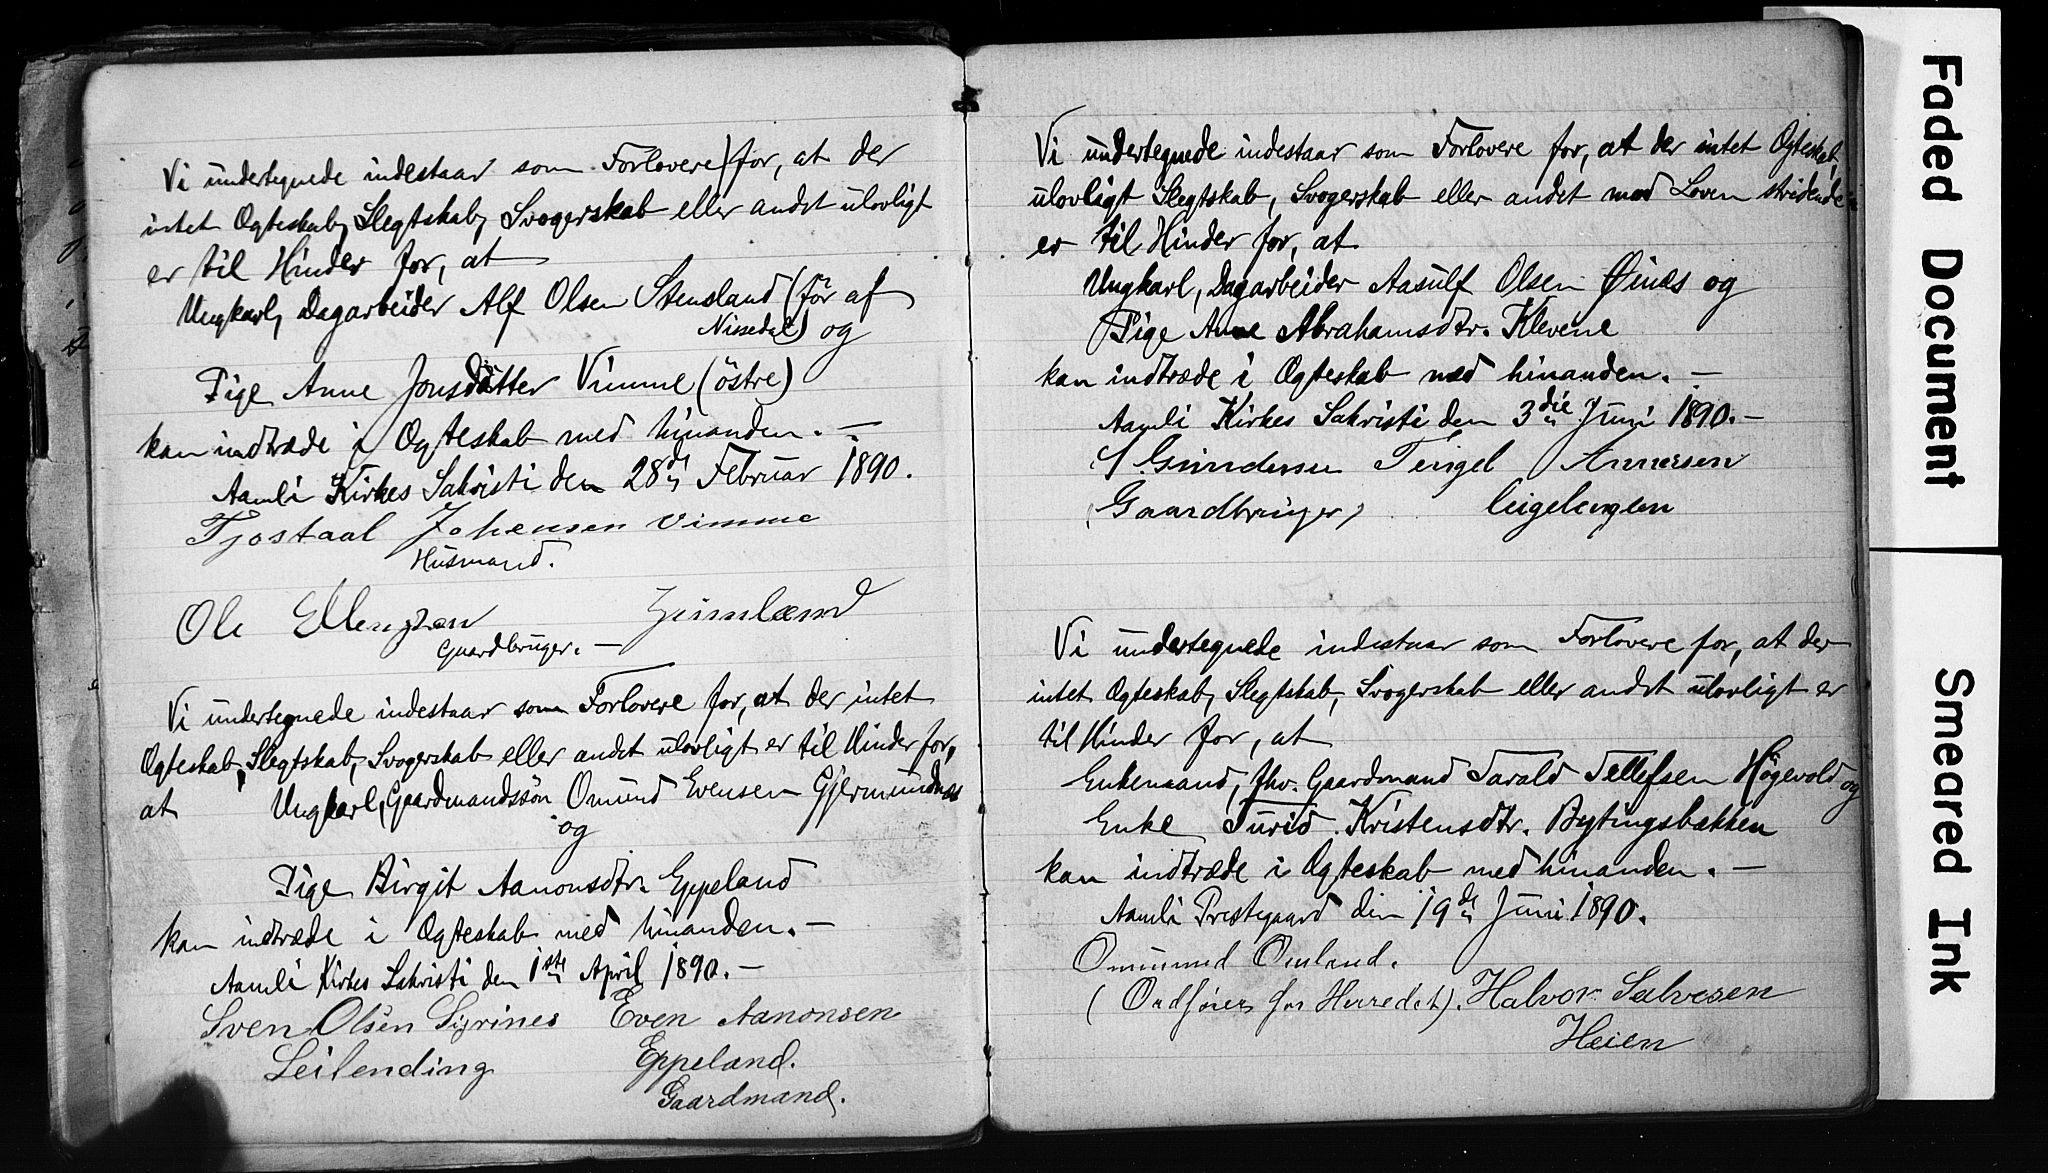 Vi undertegnede indestaar som Forlovere for, at der
intet Ægteskab, Slegtskab, Svogerskab eller andet ulovligt
er til Hinder for, at
Ungkarl, Dagarbeider Alf Olsen Stensland (før af
Nissedal) og
Pige Anne Jonsdatter Vimme (östre)
kan indtræde i Ægteskab med hinanden. —
Aamli Kirkes Sakristi den 28de Februar 1890.
Tjostaal Johensen Vimme
Husmand.
Ole Ellengsen
Gaardbruger. —
Vi undertegnede indestaar som Forlovere for, at der intet
Ægteskab, Slegtskab, Svogerskab eller andet ulovligt er til Hinder for,
at Ungkarl, Gaardmandssön Omund Evensen Gjermundnes
og
Pige Birgit Aanonsdtr. Eppeland
kan indtræde i Ægteskab med hinanden. —
Aamli Kirkes Sakristi den 1ste April 1890. —
Sven Olsen Sigrines Even Aanonsen
Leilending Eppeland.
Gaardmand.
Vi undertegnede indestaar som Forlovere for, at der intet Ægteskab,
ulovligt Slegtskab, Svogerskab eller andet mod Loven stridende
er til Hinder for, at
Ungkarl, Dagarbeider Aasulf Olsen Øinæs og
Pige Anne Abrahamsdtr. Klevene
kan indtræde i Ægteskab med hinanden. —
Aamli Kirkes Sakristi den 3die Juni 1890. —
Gundersen Tengel Annersen
(Gaardbruger)
Vi undertegnede indestaar som Forlovere for, at der
intet Ægteskab, Slegtskab, Svogerskab eller andet ulovligt er
til Hinder for, at
Enkemand, fhv. Gaardmand Tarald Tellefsen Högevold og
Enke Turid Kristensdtr. Bytingsbakken
kan indtræde i Ægteskab med hinanden. —
Aamli Prestegaard den 19de Juni 1890.
Ommund Omland.
(Ordfører for Herredet). Halvor Salvesen
Heien
Faded Document
Smeared Ink